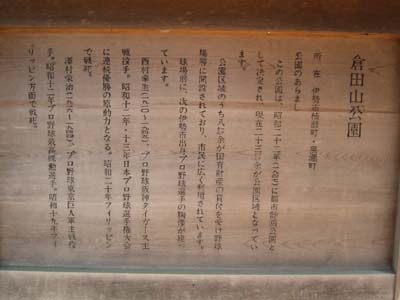 倉田山公園
所 在 伊勢市楠部町・
公園のあらまし
この公園は、昭和二十 年 に都市計画公園と
して決定され、現在二十三 余が公園区域となってい
ます。
公園区域のうち 余が国有財産の貸付を受け野球
場等に開設されており、市民に広く利用されています。
球場前に、次の伊勢市出身プロ野球選手の胸像が建っ
ています。
西村幸生 プロ野球阪神タイガース主
戦投手。昭和十二年・十三年日本プロ野球選手権大会
に連続優勝の原動力となる。昭和二十年フィリッピン
で戦死。
澤村栄治 プロ野球東京巨人軍主戦投
手。昭和十二年プロ野球最高殊勲選手。昭和十九年フィ
リッピン方面で戦死。